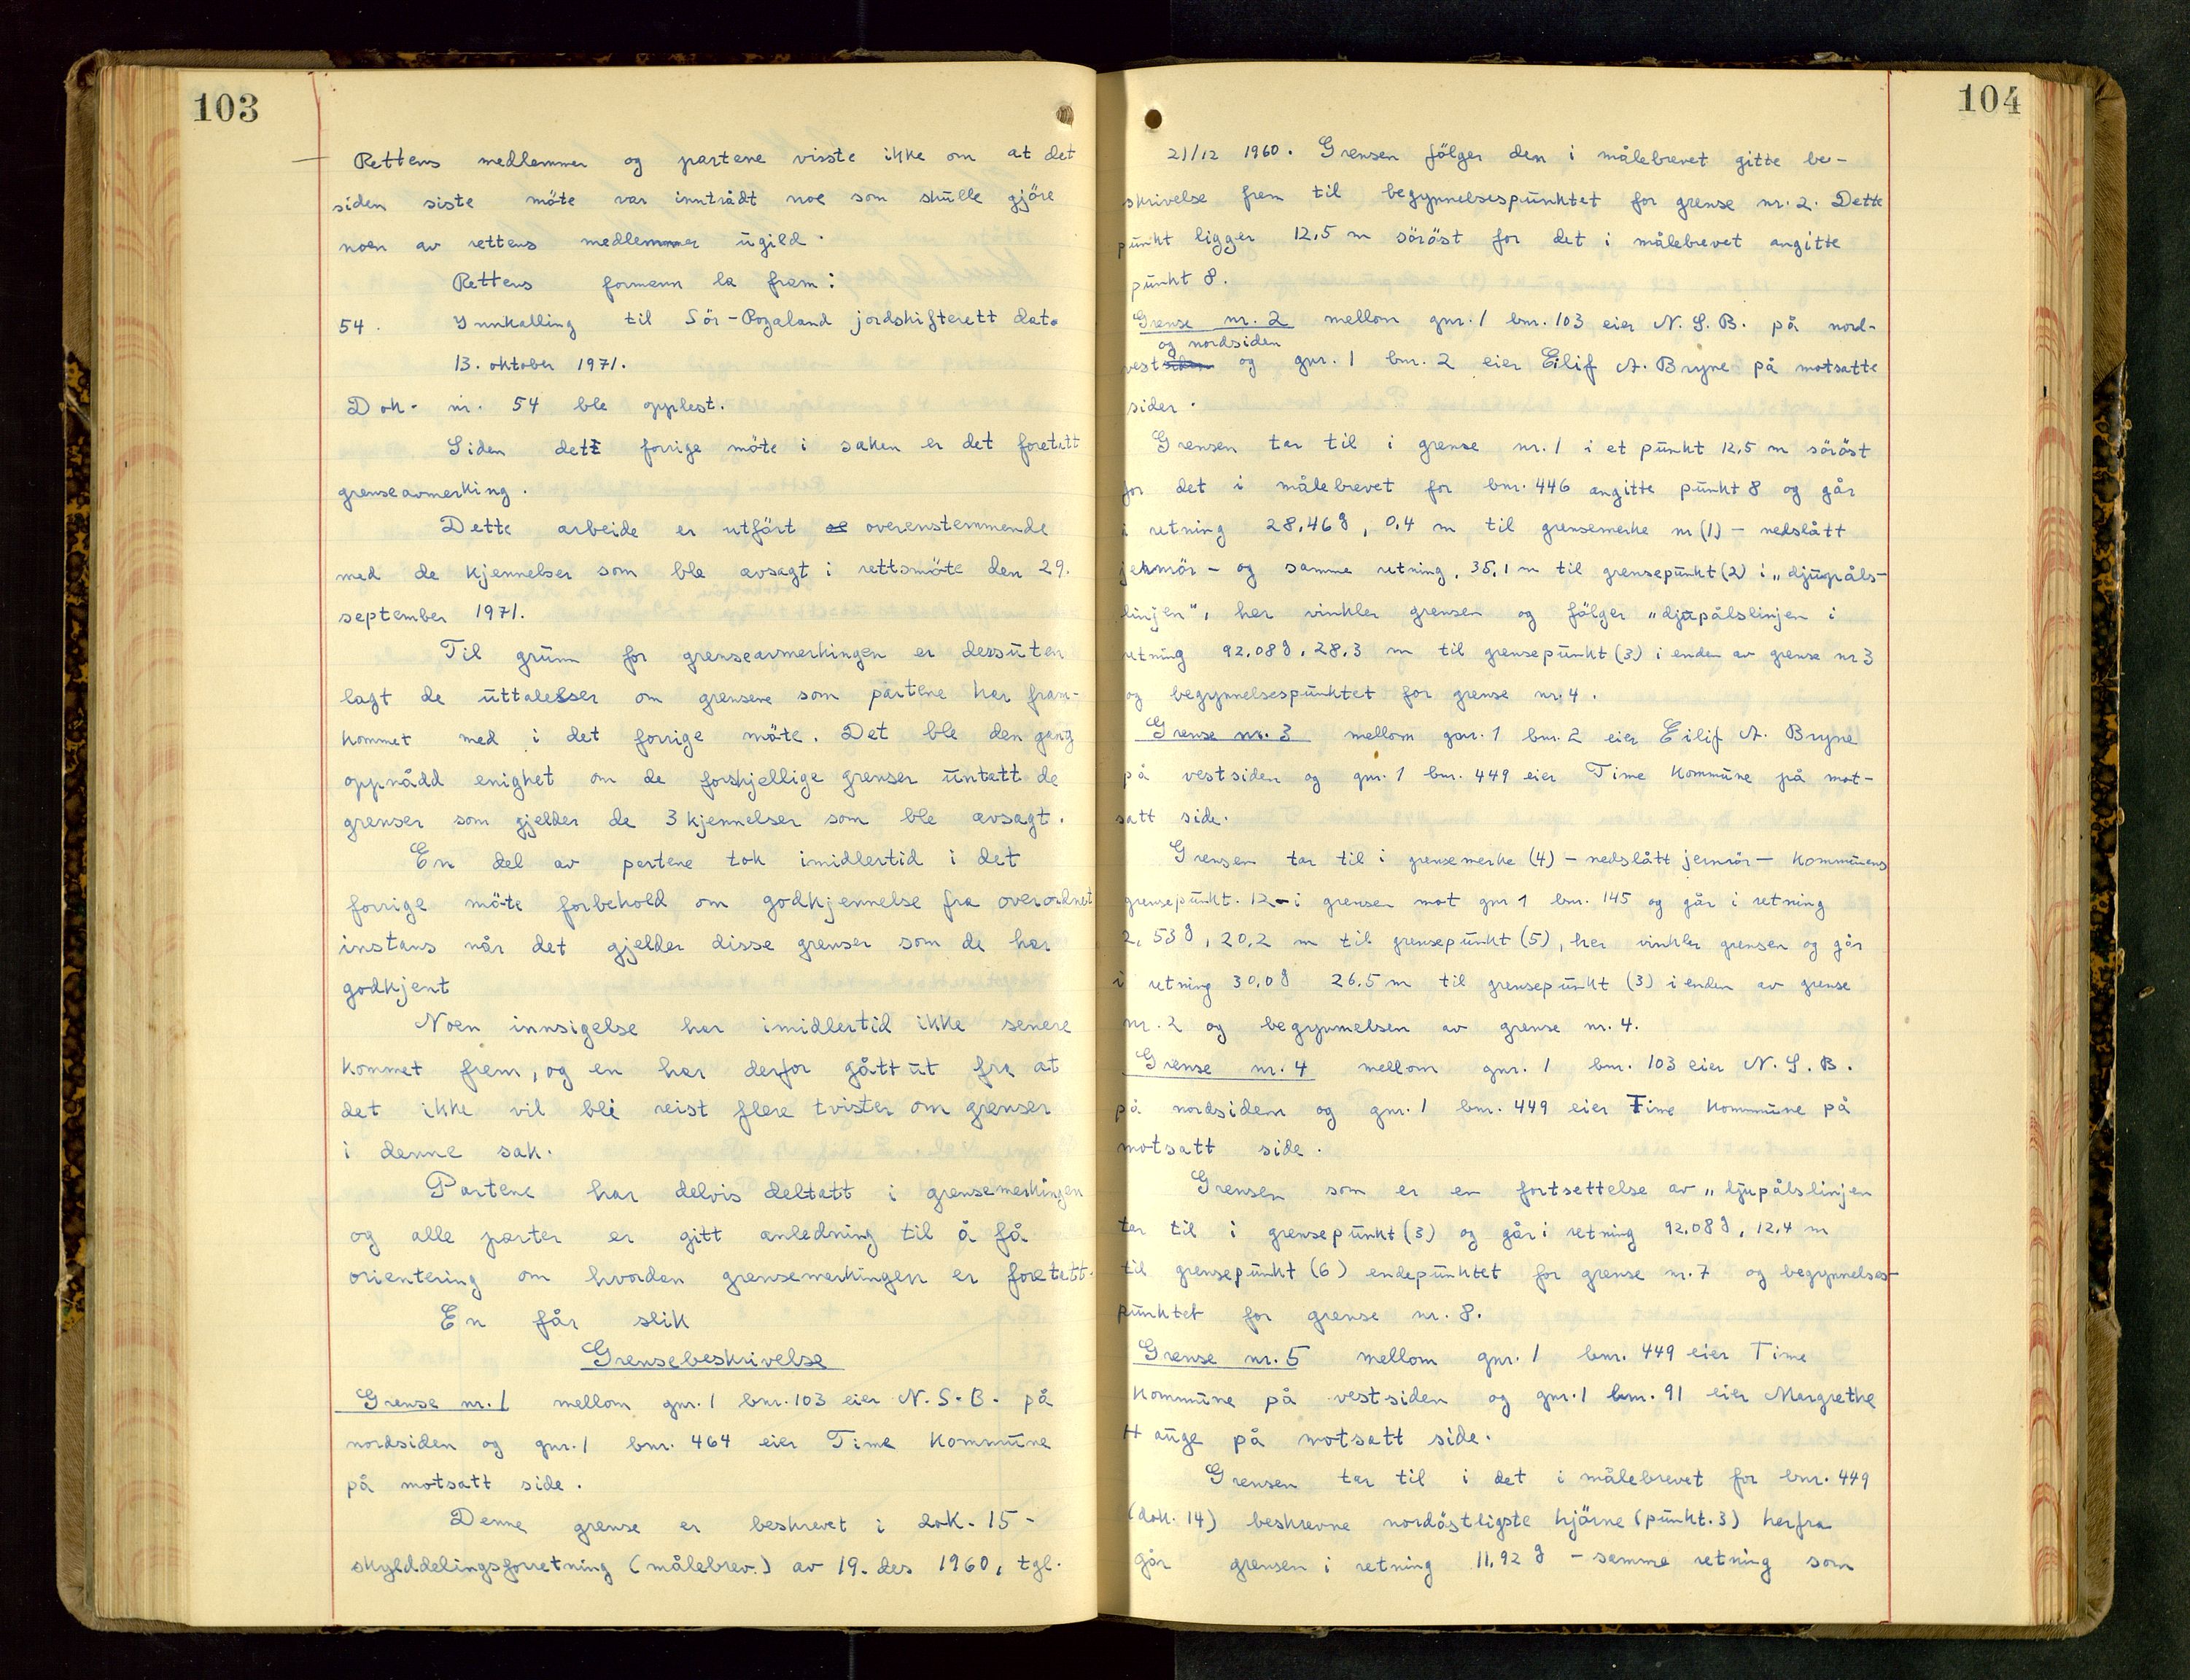 103
Rettens medlemmer og partene visste ikke om at det
siden siste möte var inntrådt noe som skulle gjöre
noen av rettens medlemmer ugild.
Rettens formann la fram:
54. Innkalling til Sör-Rogaland jordskifterett dat.
13. oktober 1971.
Dok. nr. 54 ble opplest.
Siden dett forrige möte i saken er det foretatt
grenseavmerking.
Dette arbeide er utfört overenstemmende
med de kjennelser som ble avsagt i rettsmöte den 29.
september 1971.
Til grunn for grenseavmerkingen er dessuten
lagt de uttalelser om grensene som partene har fram-
kommet med i det forrige möte. Det ble den gang
oppnådd enighet om de forskjellige grenser untatt de
grenser som gjelder de 3 kjennelser som ble avsagt.
En del av partene tok imidlertid i det
forrige möte forbehold om godkjennelse fra overordnet
instans når det gjelder disse grenser som de har
godkjent
Noen innsigelse har imidlertid ikke senere
kommet frem, og en har derfor gått ut fra at
det ikke vil bli reist flere tvister om grenser
i denne sak.
Partene har delvis deltatt i grensemerkingen
og alle parter er gitt anledning til å få
orientering om hvordan grensemerkingen er foretatt.
En får slik
Grensebeskrivelse
Grense nr. 1 mellom gnr. 1 bnr. 103 eier N.S.B. på
nordsiden og gnr. 1 bnr. 464 eier Time Kommune
på motsatt side.
Denne grense er beskrevet i dok. 15 -
skylddelingsforretning (målebrev.) av 19. des 1960, tgl.
104
21/12 1960. Grensen fölger den i målebrevet gitte be-
skrivelse frem til begynnelsespunktet for grense nr. 2. Dette
punkt ligger 12,5 m söröst for det i målebrevet angitte
punkt 8.
Grense nr. 2 mellom gnr. 1 bnr. 103 eier N.S.B. på nord-
og nordsiden
vestsiden og gnr. 1 bnr. 2 eier Eilif A. Bryne på motsatte
sider.
Grensen tar til i grense nr. 1 i et punkt 12,5 m söröst
for det i målebrevet for bnr. 446 angitte punkt 8 og går
i retning 28,46 g, 0,4 m til grensemerke nr (1) - nedslått
jernrör - og samme retning, 35,1 m til grensepunkt (2) i „djupåls-
linjen", her vinkler grensen og fölger „djupålslinjen i
retning 92,08 g, 28,3 m til grensepunkt (3) i enden av grense nr 3
og begynnelsespunktet for grense nr. 4.
Grense nr. 3 mellom gnr. 1 bnr. 2 eier Eilif A. Bryne
på vestsiden og gnr. 1 bnr. 449 eier Time Kommune på mot-
satt side.
Grensen tar til i grensemerke (4) - nedslått jernrör - Kommunens
grensepunkt. 12 - i grensen mot gnr 1 bnr. 145 og går i retning
2,53 g, 20,2 m til grensepunkt (5), her vinkler grensen og går
i retning 30,0 g 26,5 m til grensepunkt (3) i enden av grense
nr. 2 og begynnelsen av grense nr. 4.
Grense nr. 4 mellom gnr. 1 bnr. 103 eier N.S.B.
på nordsiden og gnr. 1 bnr. 449 eier Time Kommune på
motsatt side.
Grensen som er en fortsettelse av „djupålslinjen
tar til i grensepunkt (3) og går i retning 92,08 g, 12,4 m
til grensepunkt (6) endepunktet for grense nr. 7 og begynnelses-
punktet for grense nr. 8.
Grense nr. 5 mellom gnr. 1 bnr. 449 eier Time
Kommune på vestsiden og gnr. 1 bnr. 91 eier Margrethe
Hauge på motsatt side.
Grensen tar til i det i målebrevet for bnr. 449
(dok. 14) beskrevne nordöstligste hjörne (punkt. 3) herfra
går grensen i retning 11,92 g - samme retning som